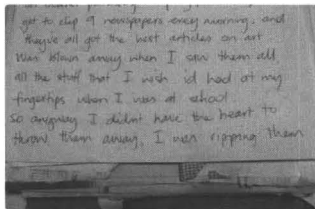 got to clip 9 newspapers every morning. and
they've all got the best articles on art
Was blown away when I saw them all
all the stuff that I wish i'd had at my
fingertips when I was at school
so anyway I didnt have the heart to
throw them away, I was ripping them